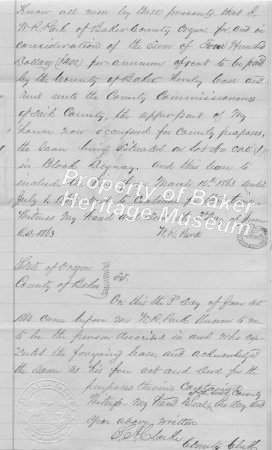 Know all men by these presents, that I
W. R. Park of Baker County Oregon, for and in
consideration of the Sum of Four Hundred
Dollars ($400) per annum of rent to be paid
by the County of Baker, hereby lease and
rent unto the County Commissioners
of said County, the upper part of My
house now occupied for County purposes,
the same being situated on Lot No one (1)
in Block
include the March 10th 1863 until
July 1
Witness My hand
A.D. 1863
W. R. Park
Property of Baker
Heritage Museum
State of Oregon
County of Baker SS.
On this the 8th day of June AD
1863 came before me W. R. Park known to me
to be the person described in and who exe-
cuted the forgoing lease and acknowledged
the same as his free act and deed for the
purposes therein
Witness My hand the day and
year above written
County Clerk